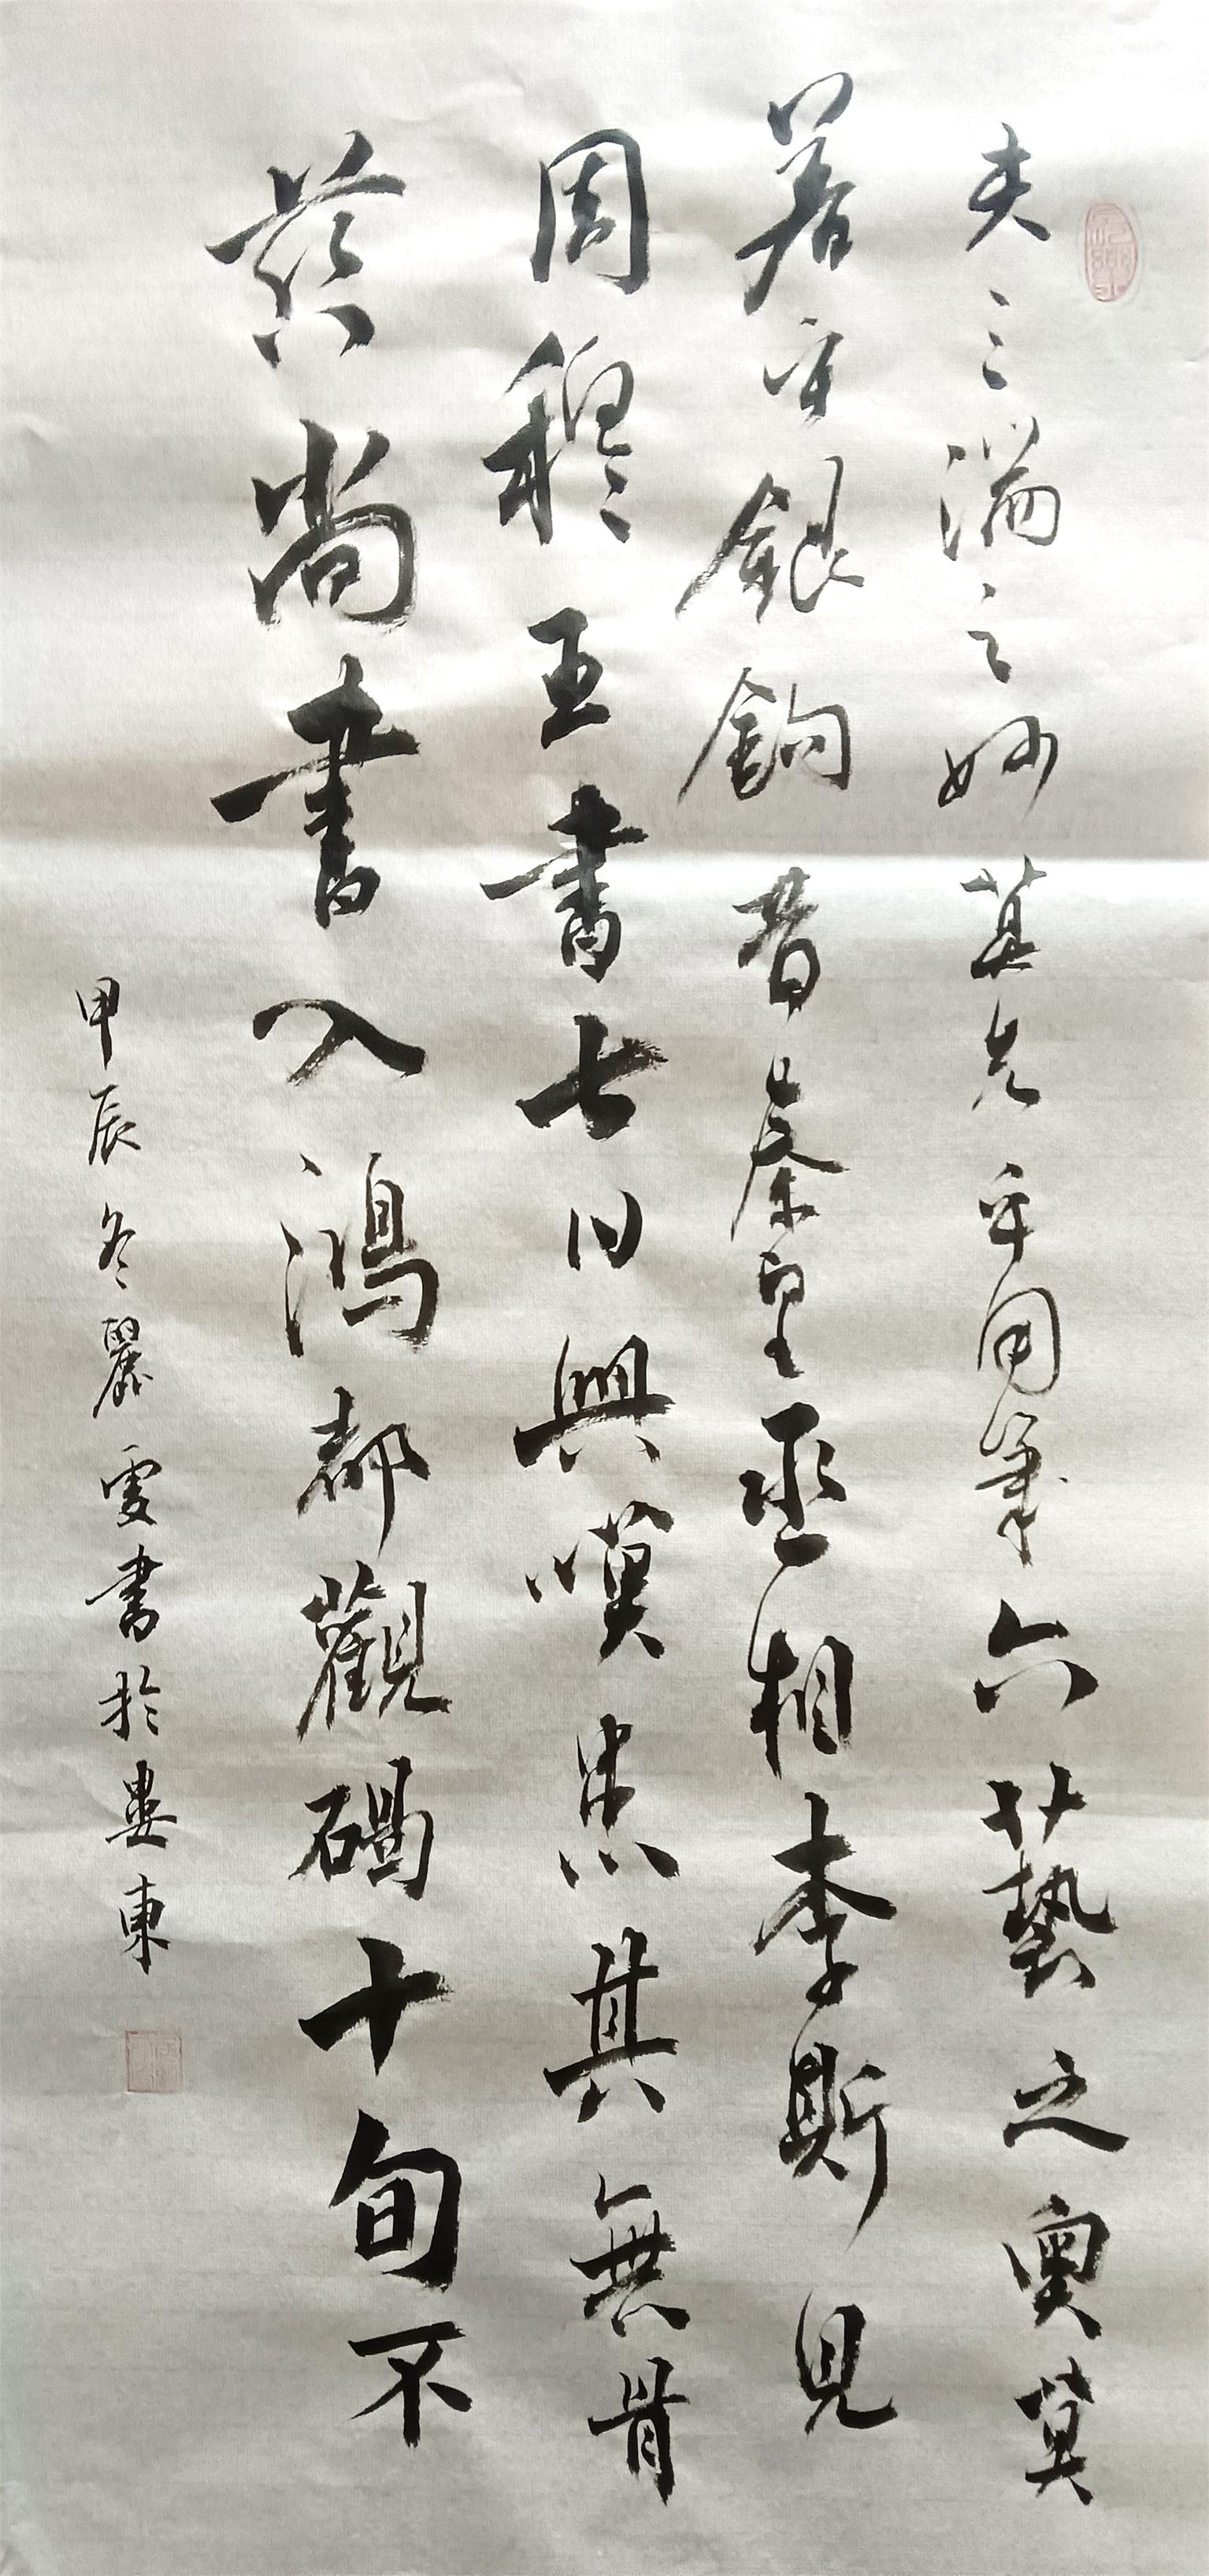 夫三端之妙莫先乎用筆六藝之奧莫
著乎銀鉤昔秦皇丞相李斯見
周穆王書七日興嘆患其無骨
蔡尚書入鴻都觀碣十旬不
甲辰冬麗雯書於婁東